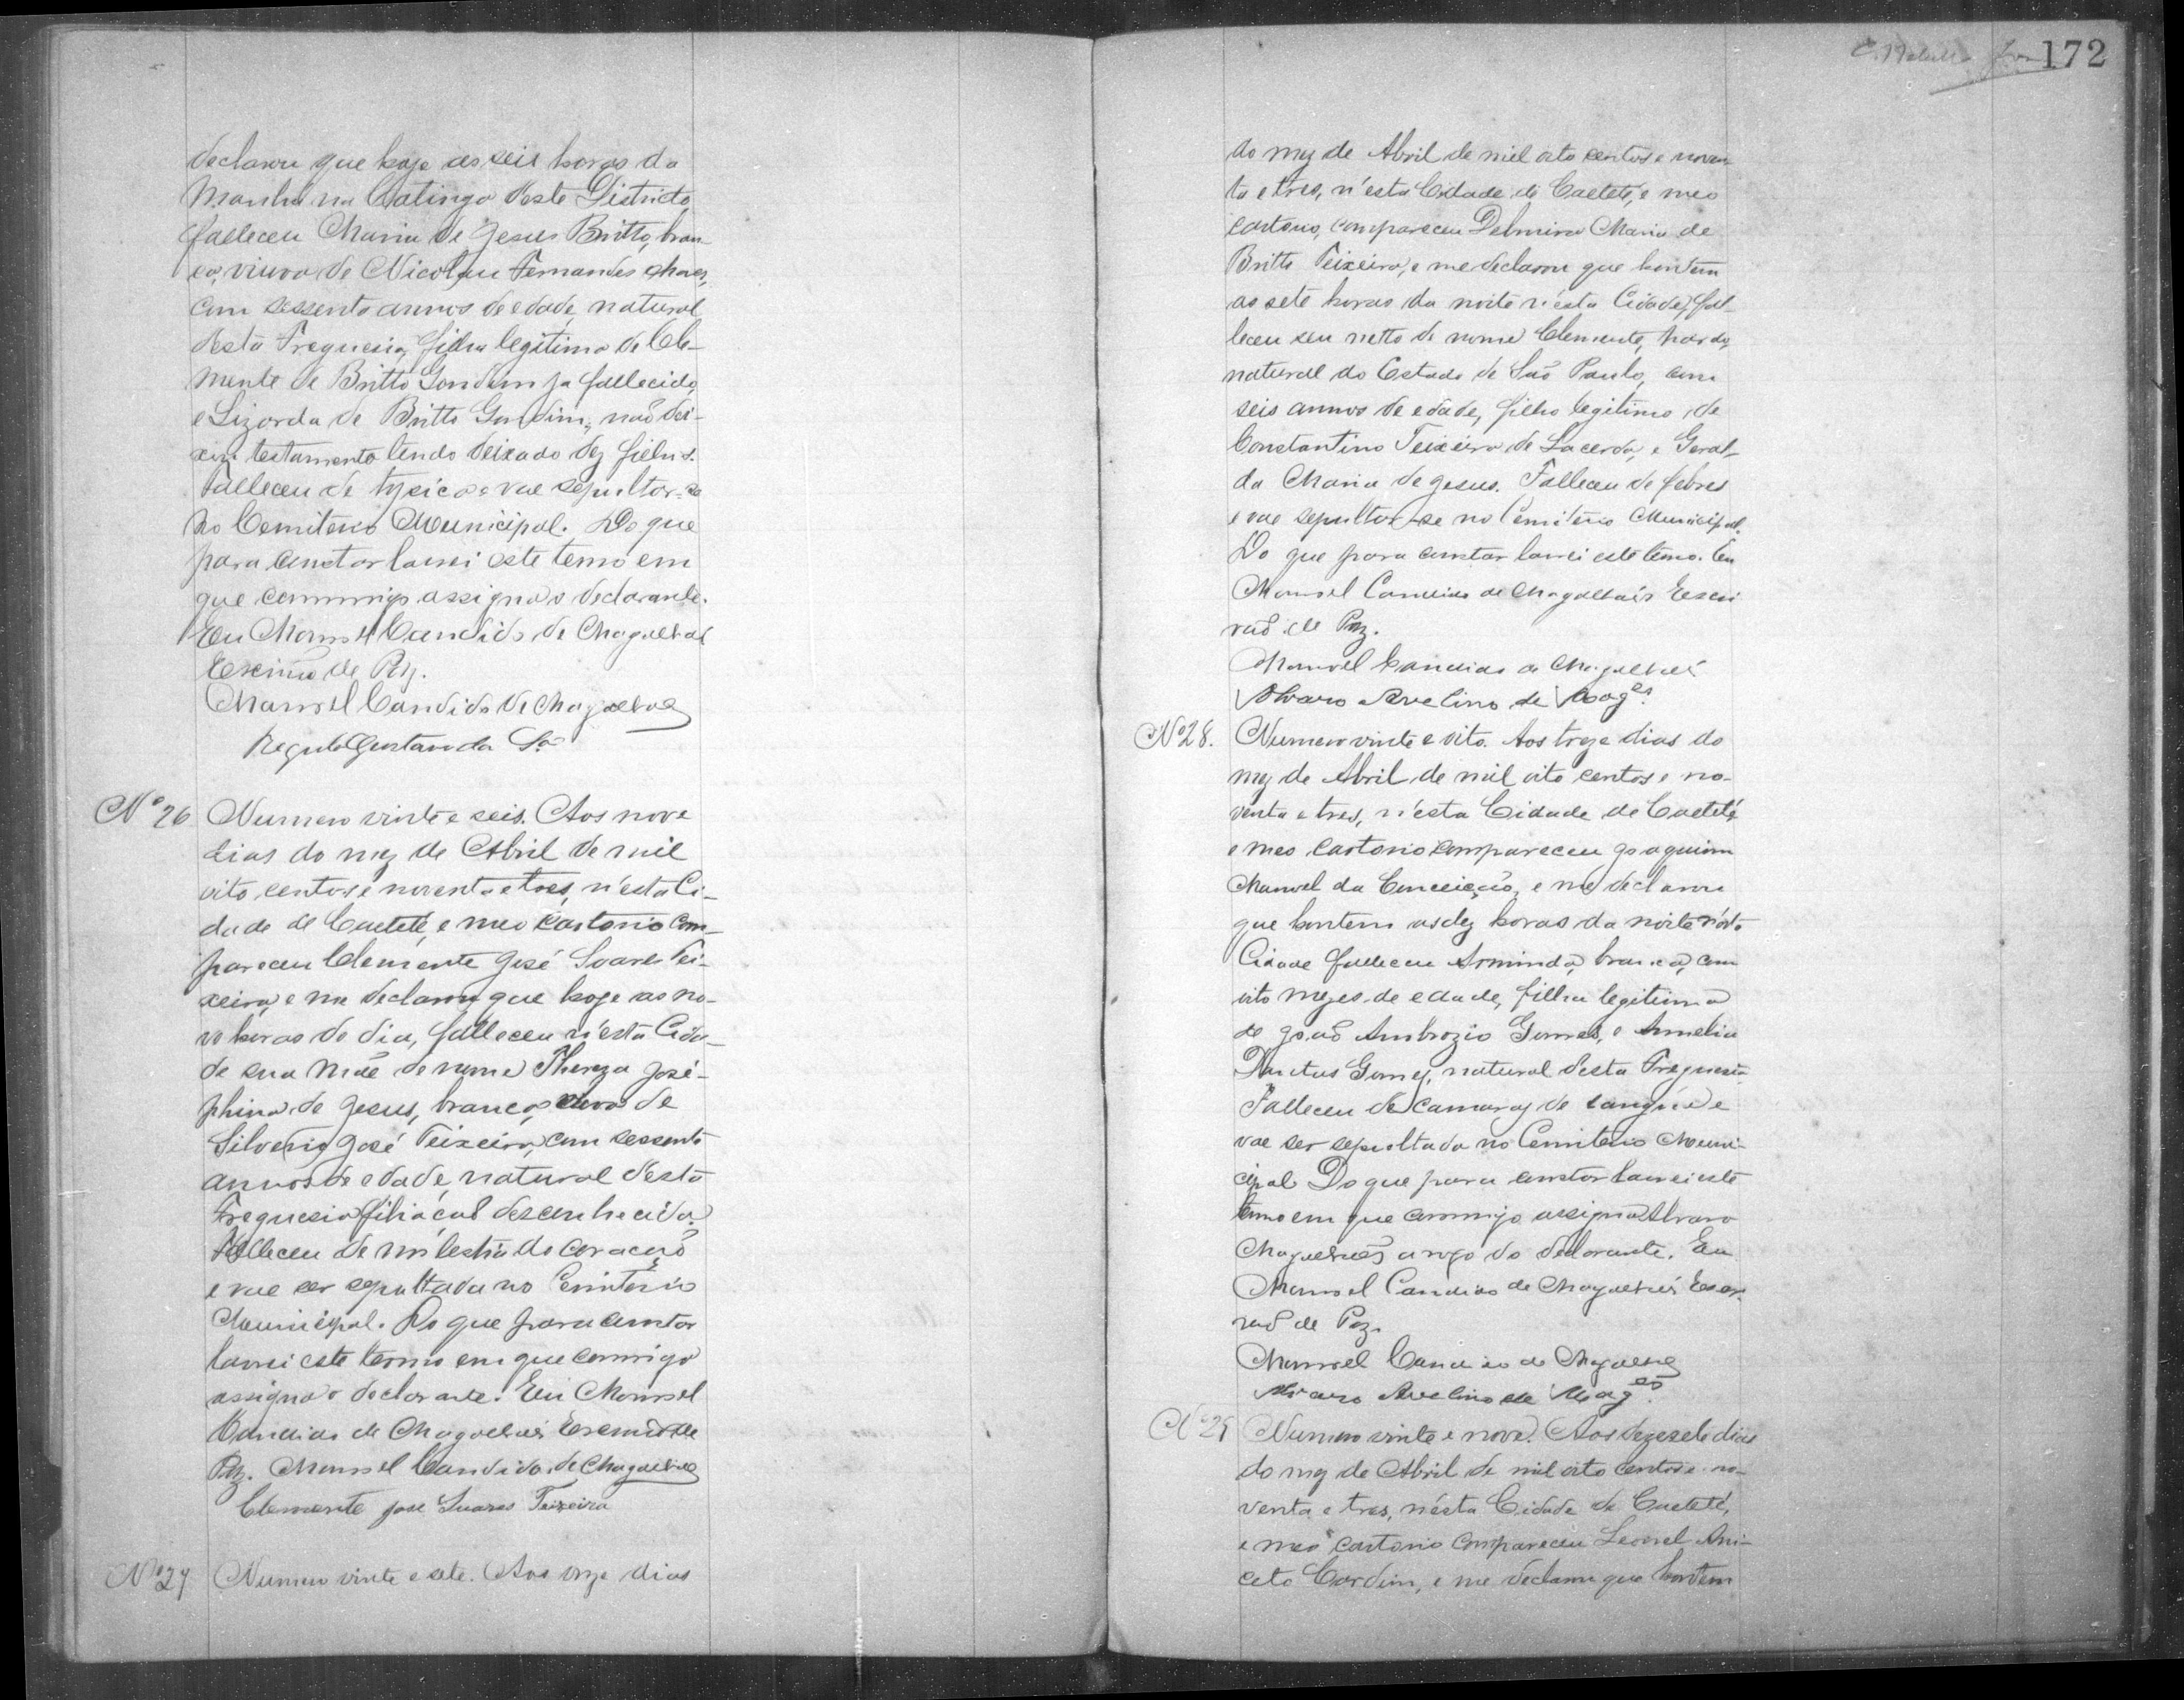 declarou que hoje as seis horas da
manhã na Catinga deste Districto,
falleceu Maria de Jesus Britto, bran-
ca, viuva de Nicolau Fernandes Chaves,
com sessenta annos de edade, natural
desta Freguesia, filha legitima de Cle-
mente de Britto Gondim ja fallecido,
e Lizarda de Britto Gondim, naõ dei-
xou testamento tendo deixado dez filhos.
Falleceu de tysica e vae sepultar-se
no Cemiterio Municipal. Do que
para constar lavrei este termo em
que commigo assigna o declarante.
Eu Manoel Candido de Magalhaẽs
Escrivaõ de Paz.
Manoel Candido de Magalhaẽs
Gustavo da Sª
Nº 26 Numero vinte e seis. Aos nove
dias do mez de Abril de mil
oito centos e noventa e tres, n'esta Ci-
dade de Caeteté, e meo Cartorio com-
pareceu Clemente José Soares Tei-
xeira, e me declarou que hoje as no-
ve horas do dia, falleceu n'esta Cida-
de sua Mãe de nome Thereza José-
phina de Jesus, branca, viuva de
Silverio José Teixeira, com sessenta
annos de edade, natural desta
Freguesia filiaçaõ desconhecida.
Falleceu de molestia do coraçaõ
e vae ser sepultada no Cemiterio
Municipal. Do que para constar
lavrei este termo em que commigo
assigna o declarante. Eu Manoel
Candido de Magalhaẽs Escrivaõ de
Paz. Manoel Candido de Magalhaẽs
Clemente José Soares Teixeira
Nº 27 Numero vinte e sete. Aos onze dias
172
do mez de Abril de mil oito centos e noven
ta e tres, n'esta Cidade de Caeteté, e meo
cartorio, compareceu Delmira Maria de
Britto Teixeira, e me declarou que hontem
as sete horas da noite n'esta Cidade, fal-
leceu seu netto de nome Clemente, pardo,
natural do Estado de Saõ Paulo, com
seis annos de edade, filho legitimo, de
Constantino Teixeira de Lacerda, e Geral-
da Maria de Jesus. Falleceu de febres
e vae sepultar-se no Cemiterio Municipal.
Do que para constar lavrei este termo. Eu
Manoel Candido de Magalhaẽs Escri
vaõ de Paz.
Manoel Candido de Magalhaẽs
Alvaro Avelino de Mag.es
Nº 28. Numero vinte e oito. Aos treze dias do
mez de Abril de mil oito centos e no-
venta e tres, n'esta Cidade de Caeteté,
e meo Cartorio compareceu Joaquim
Manoel da Conceição, e me declarou
que hontem as dez horas da noite n'esta
Cidade falleceu Arminda, branca, com
oito mezes de edade, filha legitima
de Joaõ Ambrozio Gomes, e Amelia
Dantas Gomes, natural desta Freguesia
Falleceu de camaras de sangue e
vae ser sepultada no Cemiterio Muni-
cipal. Do que para constar lavrei este
termo em que commigo assigna Alvaro
Magalhaẽs a rogo do declarante. Eu
Manoel Candido de Magalhaẽs Escri
vaõ de Paz.
Manoel Candido de Magalhaẽs
Alvaro Avelino de Mag.es
Nº 29 Numero vinte e nove. Aos dezesete dias
do mez de Abril de mil oito centos e no-
venta e tres, n'esta Cidade de Caeteté,
e meo cartorio compareceu Leonel Ani-
ceto Cardim, e me declarou que hontem